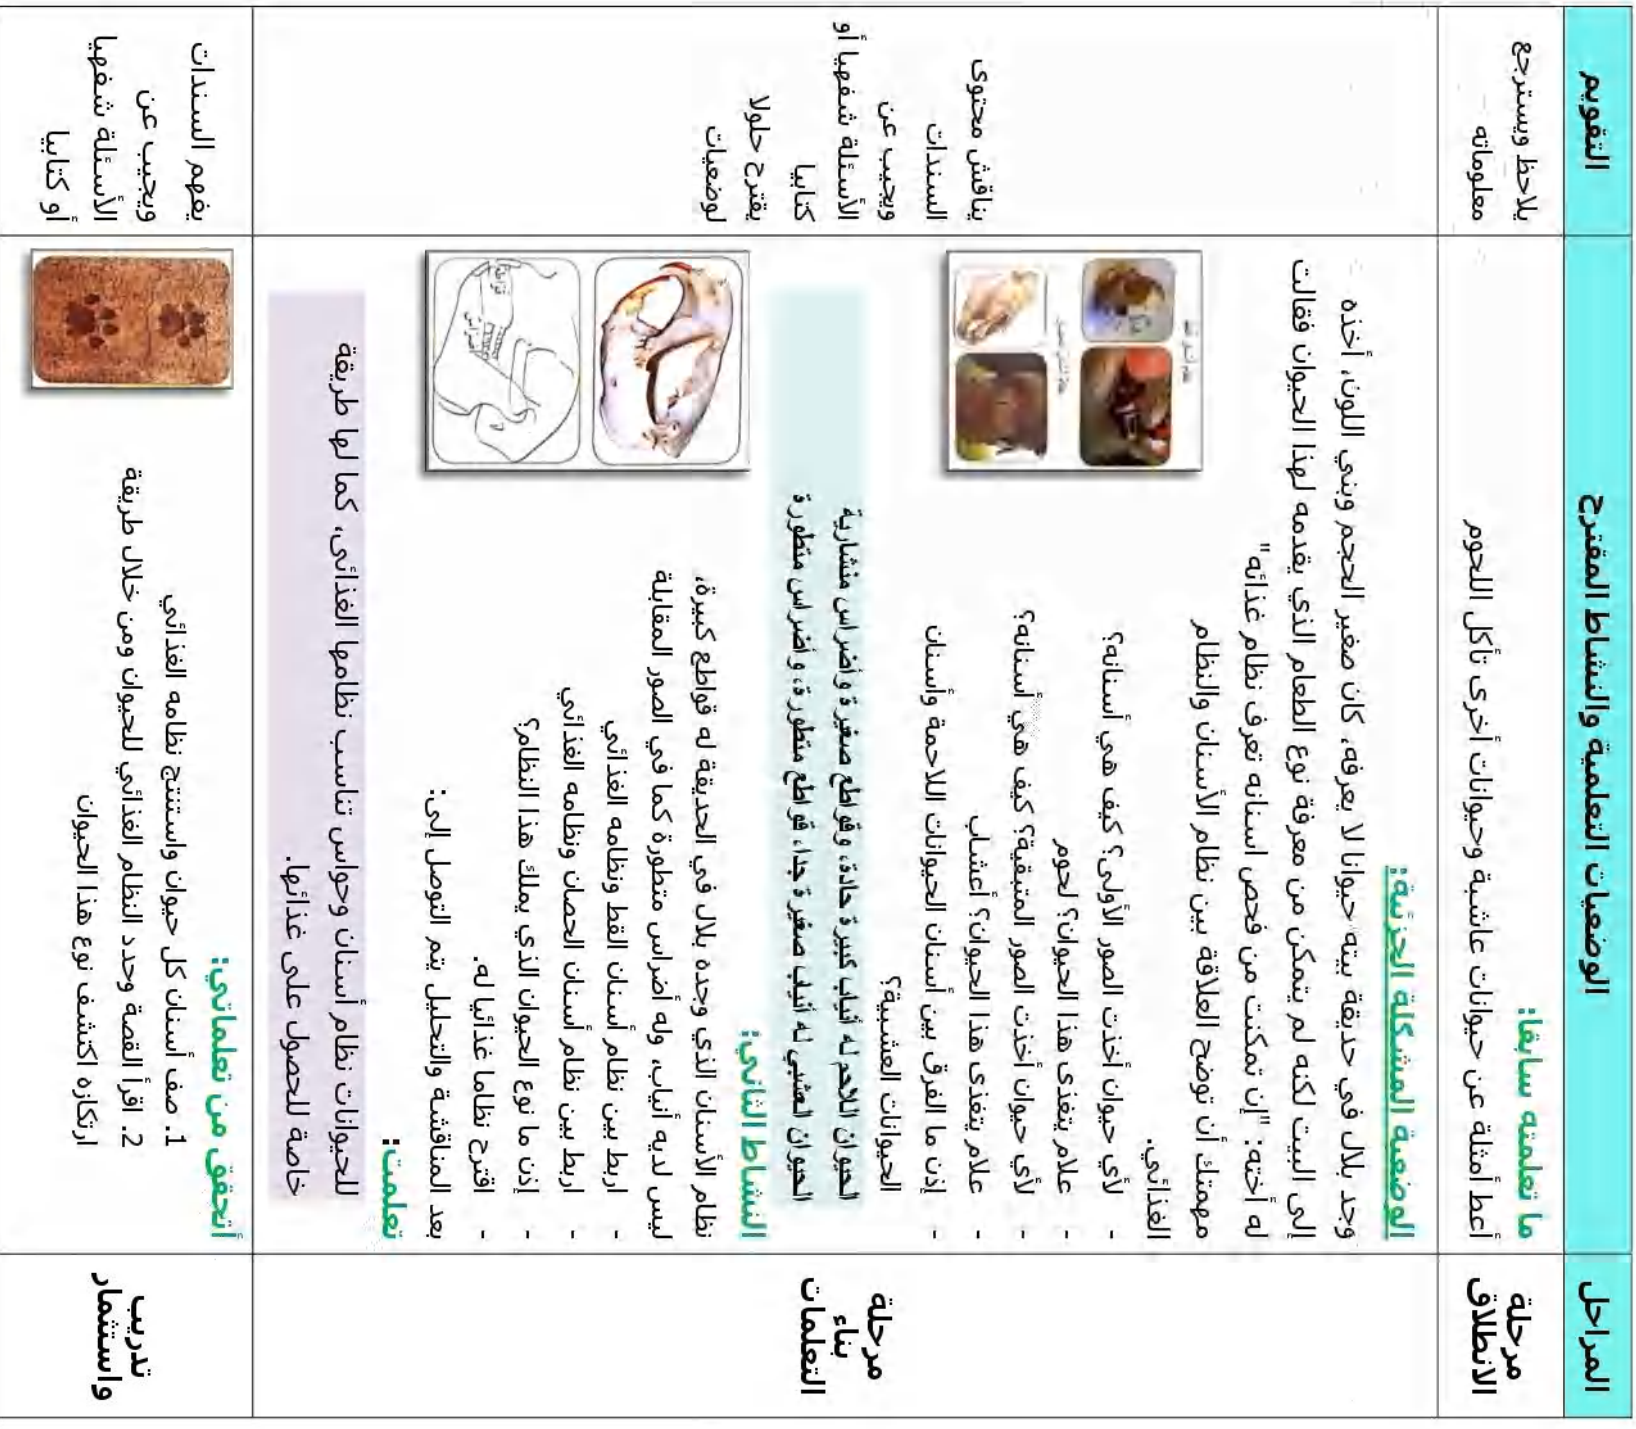 المراحل
الوضعيات التعلمية والنشاط المقترح
التقويم
مرحلة
الانطلاق
ما تعلمته سابقا:
أعط أمثلة عن حيوانات عاشبة وحيوانات أخرى تأكل اللحوم
يلاحظ ويسترجع
معلوماته
مرحلة
بناء
التعلمات
الوضعية المشكلة الجزئية:
وجد بلال في حديقة بيته حيوانا لا يعرفه، كان صغير الحجم وبني اللون، أخذه
إلى البيت لكنه لم يتمكن من معرفة نوع الطعام الذي يقدمه لهذا الحيوان فقالت
له أخته: "إن تمكنت من فحص اسنانه تعرف نظام غذائه"
مهمتك أن توضح العلاقة بين نظام الأسنان والنظام
الغذائي.
- لأي حيوان أخذت الصور الأولى؟ كيف هي أسنانه؟
- علام يتغذى هذا الحيوان؟ لحوم
- لأي حيوان أخذت الصور المتبقية؟ كيف هي أسنانه؟
- علام يتغذى هذا الحيوان؟ أعشاب
- إذن ما الفرق بين أسنان الحيوانات اللاحمة وأسنان
الحيوانات العشبية؟
الحيوان اللاحم له أنياب كبيرة حادة، وقواطع صغيرة وأضراس منشارية
الحيوان العشبي له أنياب صغيرة جدا، قواطع متطورة، وأضراس متطورة
النشاط الثاني:
نظام الأسنان الذي وجده بلال في الحديقة له قواطع كبيرة،
ليس لديه أنياب، وله أضراس متطورة كما في الصور المقابلة
- اربط بين نظام أسنان القط ونظامه الغذائي
- اربط بين نظام أسنان الحصان ونظامه الغذائي
- إذن ما نوع الحيوان الذي يملك هذا النظام؟
- اقترح نظاما غذائيا له.
بعد المناقشة والتحليل يتم التوصل إلى:
تعلمت:
للحيوانات نظام أسنان وحواس تناسب نظامها الغذائي، كما لها طريقة
خاصة للحصول على غذائها.
يناقش محتوى
السندات
ويجيب عن
الأسئلة شفهيا أو
كتابيا
يقترح حلولا
لوضعيات
تدريب
واستثمار
أتحقق من تعلماتي:
1. صف أسنان كل حيوان واستنتج نظامه الغذائي
2. اقرأ القصة وحدد النظام الغذائي للحيوان ومن خلال طريقة
ارتكازه اكتشف نوع هذا الحيوان
يفهم السندات
ويجيب عن
الأسئلة شفهيا
أو كتابيا